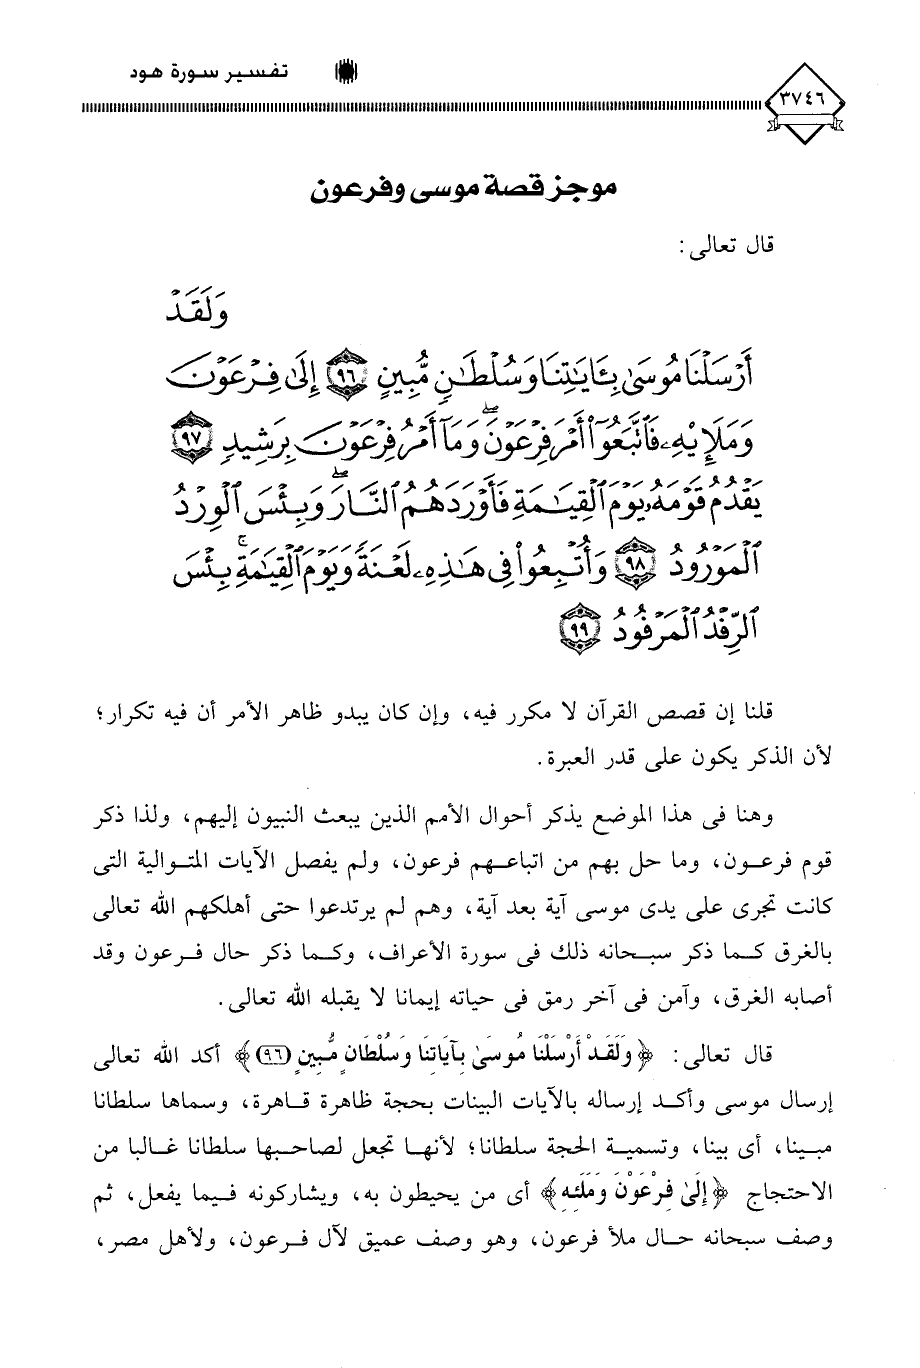 تفسير سورة هود
٣٧٤٦
موجز قصة موسى وفرعون
قال تعالى :
وَلَقَدْ
أَرْسَلْنَا مُوسَىٰ بِـَٔايَـٰتِنَا وَسُلْطَـٰنٍ مُّبِينٍ ٩٦ إِلَىٰ فِرْعَوْنَ
وَمَلَإِيْهِۦ فَٱتَّبَعُوٓا۟ أَمْرَ فِرْعَوْنَ ۖ وَمَآ أَمْرُ فِرْعَوْنَ بِرَشِيدٍ ٩٧
يَقْدُمُ قَوْمَهُۥ يَوْمَ ٱلْقِيَـٰمَةِ فَأَوْرَدَهُمُ ٱلنَّارَ ۖ وَبِئْسَ ٱلْوِرْدُ
ٱلْمَوْرُودُ ٩٨ وَأُتْبِعُوا۟ فِى هَـٰذِهِۦ لَعْنَةً وَيَوْمَ ٱلْقِيَـٰمَةِ ۚ بِئْسَ
ٱلرِّفْدُ ٱلْمَرْفُودُ ٩٩
قلنا إن قصص القرآن لا مكرر فيه، وإن كان يبدو ظاهر الأمر أن فيه تكرار؛
لأن الذكر يكون على قدر العبرة.
وهنا فى هذا الموضع يذكر أحوال الأمم الذين يبعث النبيون إليهم، ولذا ذكر
قوم فرعـون، وما حل بهم من اتباعـهم فرعون، ولم يفصل الآيات المتـوالية التى
كانت تجرى على يدى موسى آية بعد آية، وهم لم يرتدعوا حتى أهلكهم الله تعالى
بالغرق كـما ذكر سبـحانه ذلك فى سورة الأعراف، وكـما ذكر حال فـرعون وقد
أصابه الغرق، وآمن فى آخر رمق فى حياته إيمانا لا يقبله الله تعالى.
قال تعالى: ﴿وَلَقَدْ أَرْسَلْنَا مُوسَىٰ بِآيَاتِنَا وَسُلْطَانٍ مُّبِينٍ (٩٦)﴾ أكد الله تعالى
إرسال موسى وأكـد إرساله بالآيات البينات بحجة ظاهرة قـاهرة، وسماها سلطانا
مبـينا، أى بينا، وتسميـة الحجة سلطانا؛ لأنهـا تجعل لصاحـبها سلطانا غـالبا من
الاحتجاج ﴿إِلَىٰ فِرْعَوْنَ وَمَلَئِهِ﴾ أى من يحيطون به، ويشاركونه فـيما يفعل، ثم
وصف سبحانه حـال ملأ فرعون، وهو وصف عميق لآل فـرعون، ولأهل مصر،